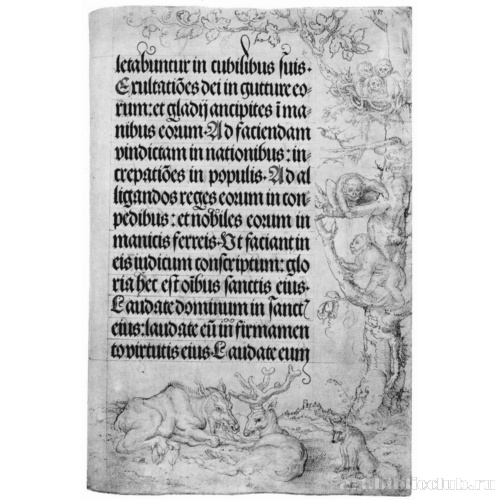 letabuntur in cubilibus suis·
Exultatiões dei in gutture eo-
rum: et gladij ancipites ī ma-
nibus eorum· Ad faciendam
vindictam in nationibus: in-
crepatiões in populis· Ad al
ligandos reges eorum in com-
pedibus: et nobiles eorum in
manicis ferreis· Ut faciant in
eis iudicium conscriptum: glo
ria hec est oībus sanctis eius·
Laudate dominum in sanct'
eius: laudate eū in firmamen
to virtutis eius· Laudate eum